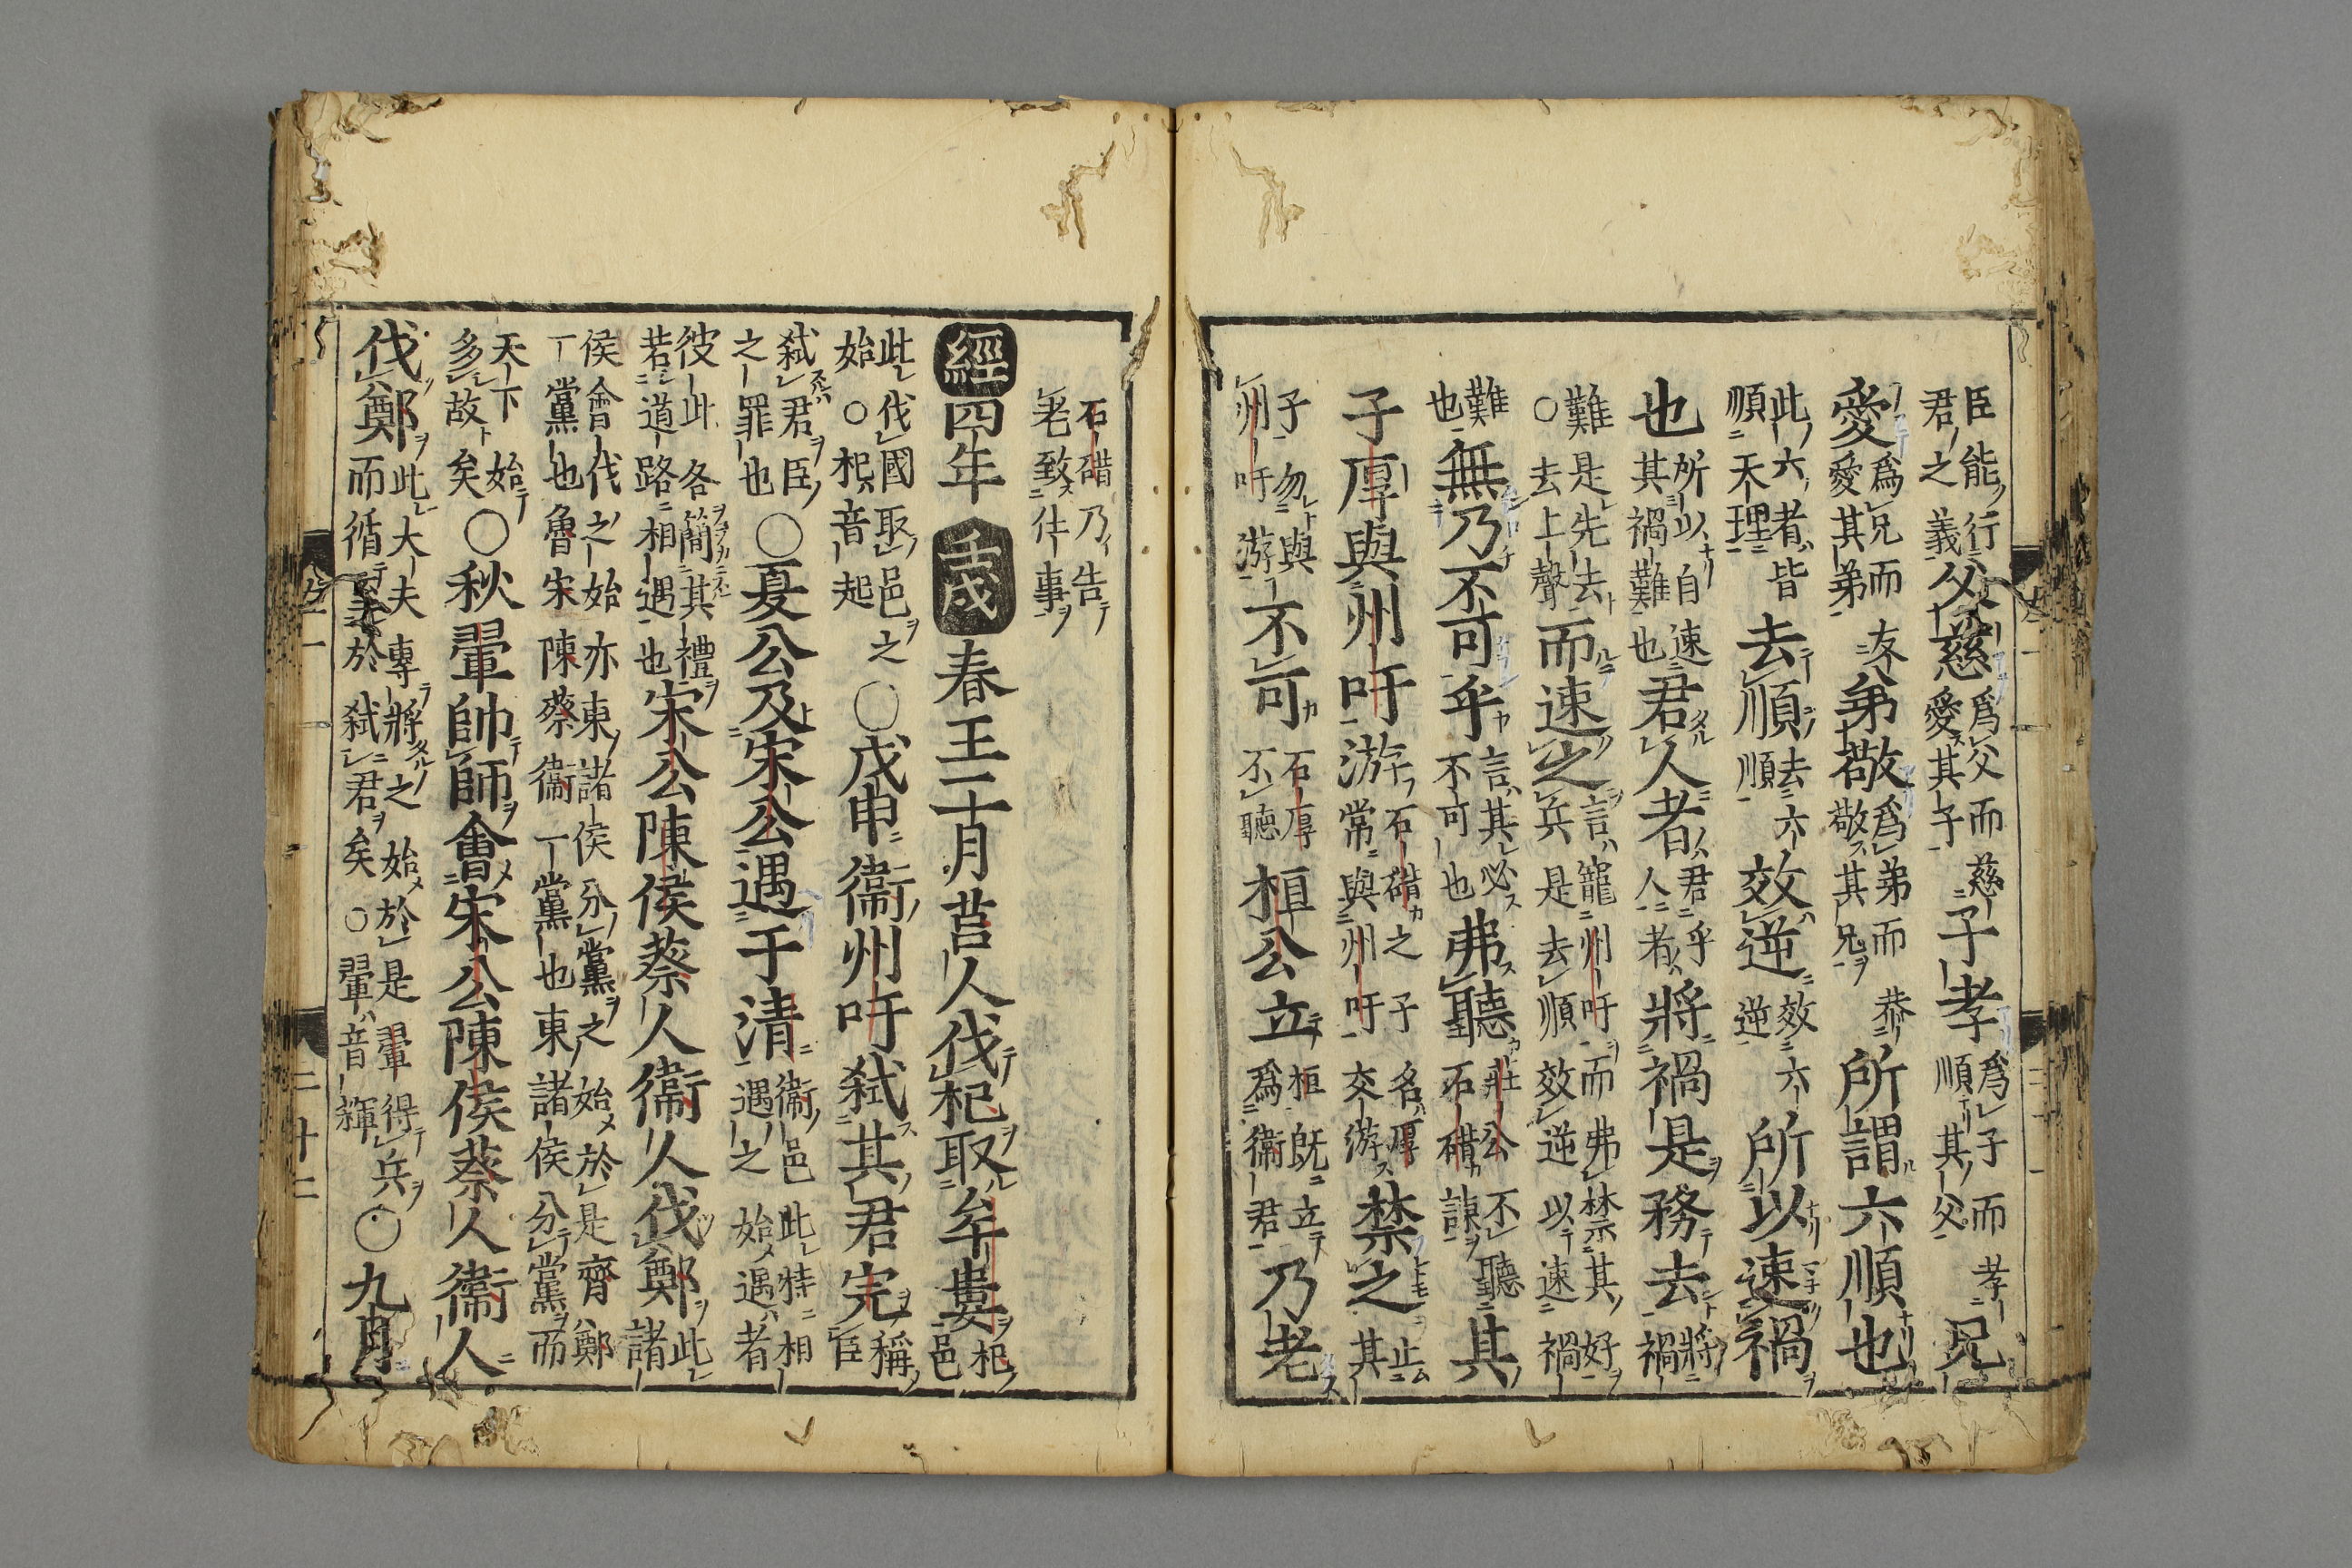 臣能行君之義父慈爲父而慈愛其子子孝爲子而孝順其父兄
愛爲兄而友愛其弟弟敬爲弟而恭敬其兄所謂六順也
此六者皆順天理去順去六順效逆效六逆所以速禍
也所以自速其禍難也君人者君乎人者將禍是務去將禍
難是先去○去上聲而速之言寵州吁而弗禁其好兵是去順效逆以速禍
難也無乃不可乎言其必不可也弗聽莊公不聽石碏諫其
子厚與州吁游石碏之子名厚常與州吁交游禁之止其
子勿與州吁游不可石厚不聽桓公立桓既立爲衞君乃老
石碏乃告老致仕事
經四年壬戌春王二月莒人伐杞取牟婁杞邑
此伐國取邑之始○杞音起○戊申衞州吁弑其君完稱臣
弑君臣之罪也○夏公及宋公遇于清衞邑此特相遇之始遇者
彼此各簡其禮若道路相遇也宋公陳侯蔡人衞人伐鄭此諸
侯會伐之始亦東諸侯分黨之始於是齊鄭一黨也魯宋陳蔡衞一黨也東諸侯分黨而
天下始多故矣○秋翬帥師會宋公陳侯蔡人衞人
伐鄭此大夫專將之始於是翬得兵而循至於弑君矣○翬音輝○九月